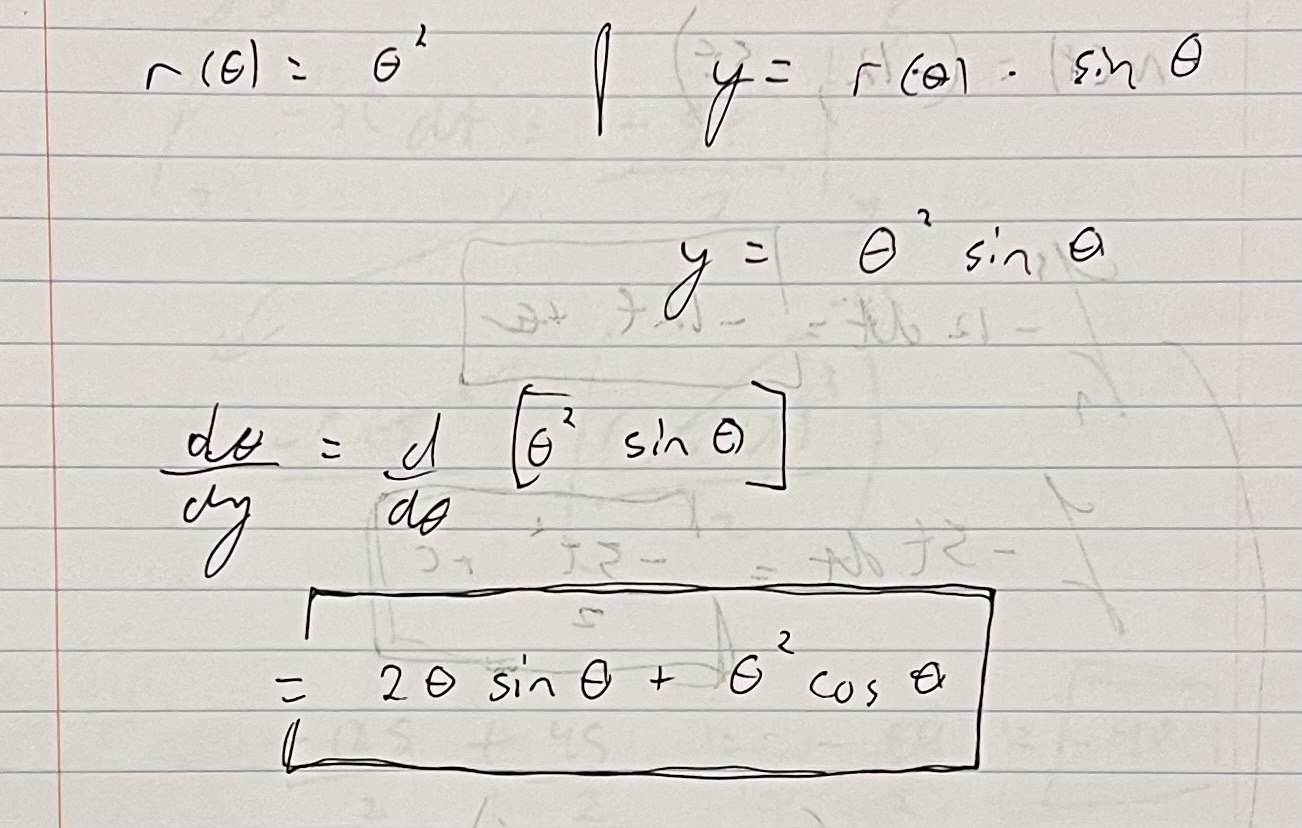 r(θ) = θ² | y = r(θ) · sin θ
y = θ² sin θ
dθ/dy = d/dθ [θ² sin θ]
= 2θ sin θ + θ² cos θ